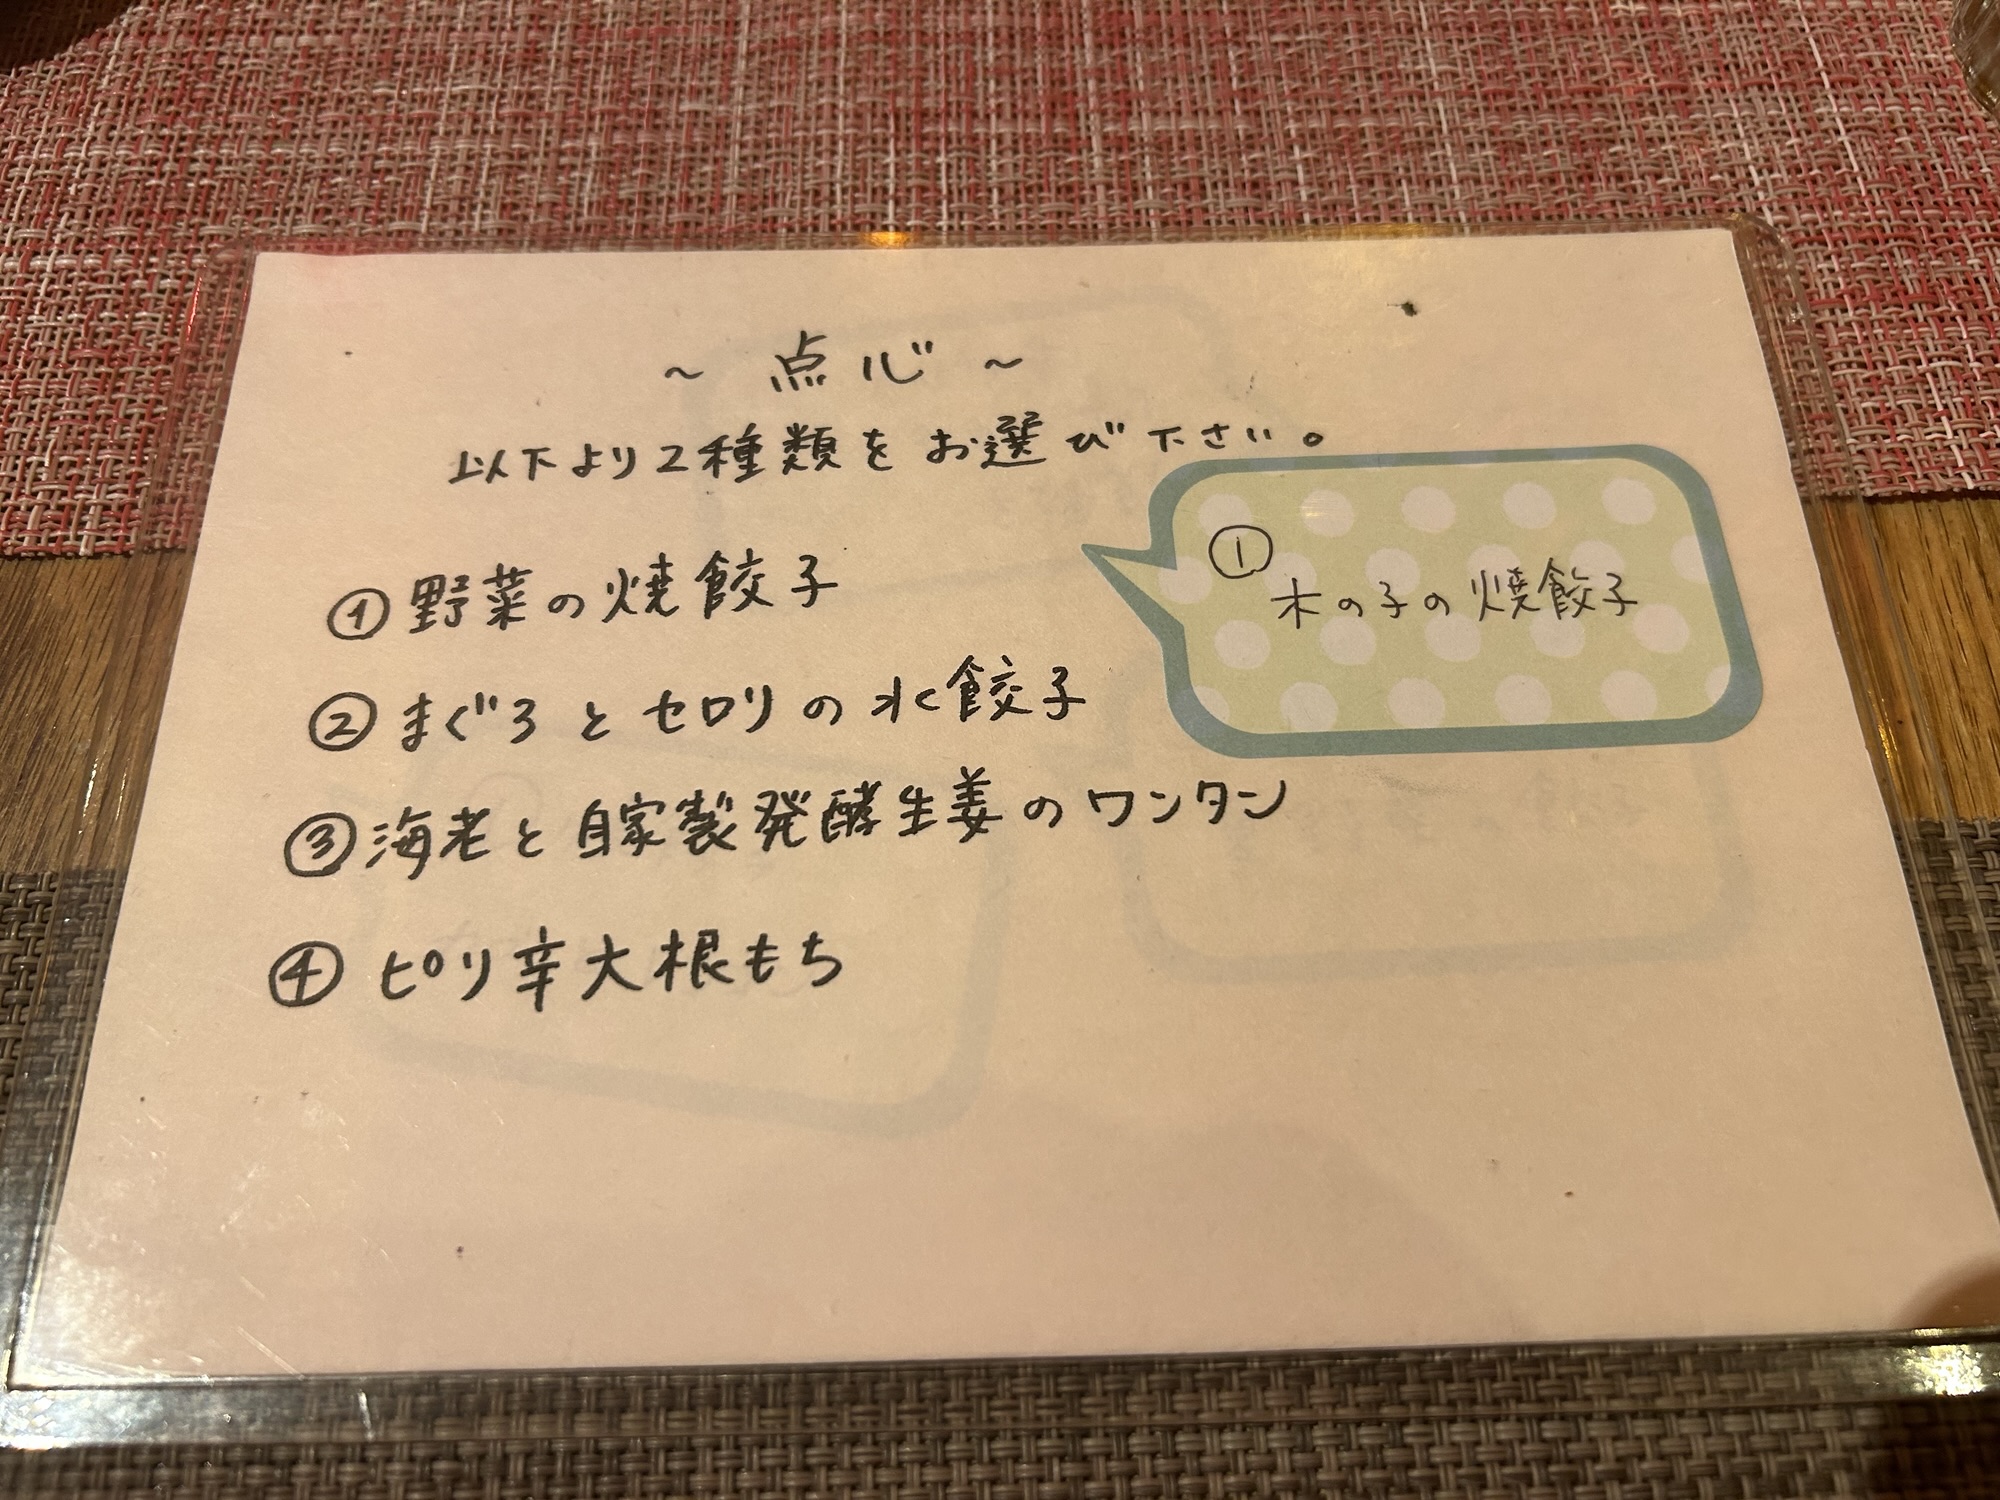 ～ 点心 ～
以下より2種類をお選び下さい。
① 野菜の焼餃子
① 木の子の焼餃子
② まぐろとセロリの水餃子
③ 海老と自家製発酵生姜のワンタン
④ ピリ辛大根もち